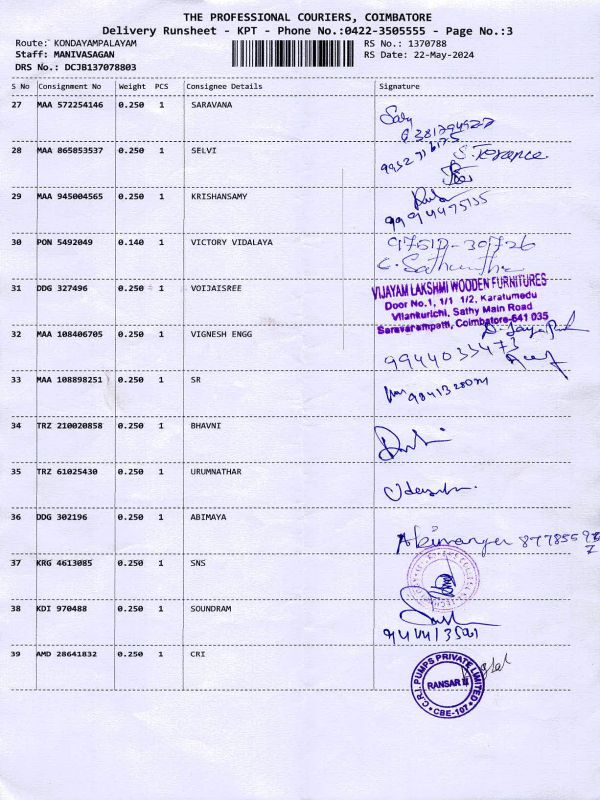 THE PROFESSIONAL COURIERS, COIMBATORE
Delivery Runsheet - KPT - Phone No.:0422-3505555 - Page No.:3
Route: KONDAYAMPALAYAM
Staff: MANIVASAGAN
DRS No.: DCJB137078803
RS No.: 1370788
RS Date: 22-May-2024
S No Consignment No Weight PCS Consignee Details Signature
27 MAA 572254146 0.250 1 SARAVANA
28 MAA 865853537 0.250 1 SELVI
S. Terance
29 MAA 945004565 0.250 1 KRISHANSAMY
30 PON 5492049 0.140 1 VICTORY VIDALAYA
97510-30726
31 DDG 327496 0.250 1 VOIJAISREE
VIJAYAM LAKSHMI WOODEN FURNITURES
Door No.1, 1/1 1/2, Karatumedu
Vilankurichi, Sathy Main Road
Saravanampatti, Coimbatore-641 035
32 MAA 108406705 0.250 1 VIGNESH ENGG
9944035473
33 MAA 108898251 0.250 1 SR
34 TRZ 210020858 0.250 1 BHAVNI
35 TRZ 61025430 0.250 1 URUMNATHAR
36 DDG 302196 0.250 1 ABIMAYA
37 KRG 4613085 0.250 1 SNS
38 KDI 970488 0.250 1 SOUNDRAM
39 AMD 28641832 0.250 1 CRI
C.R.I. PUMPS PRIVATE LIMITED
RANSAR II
CBE-107